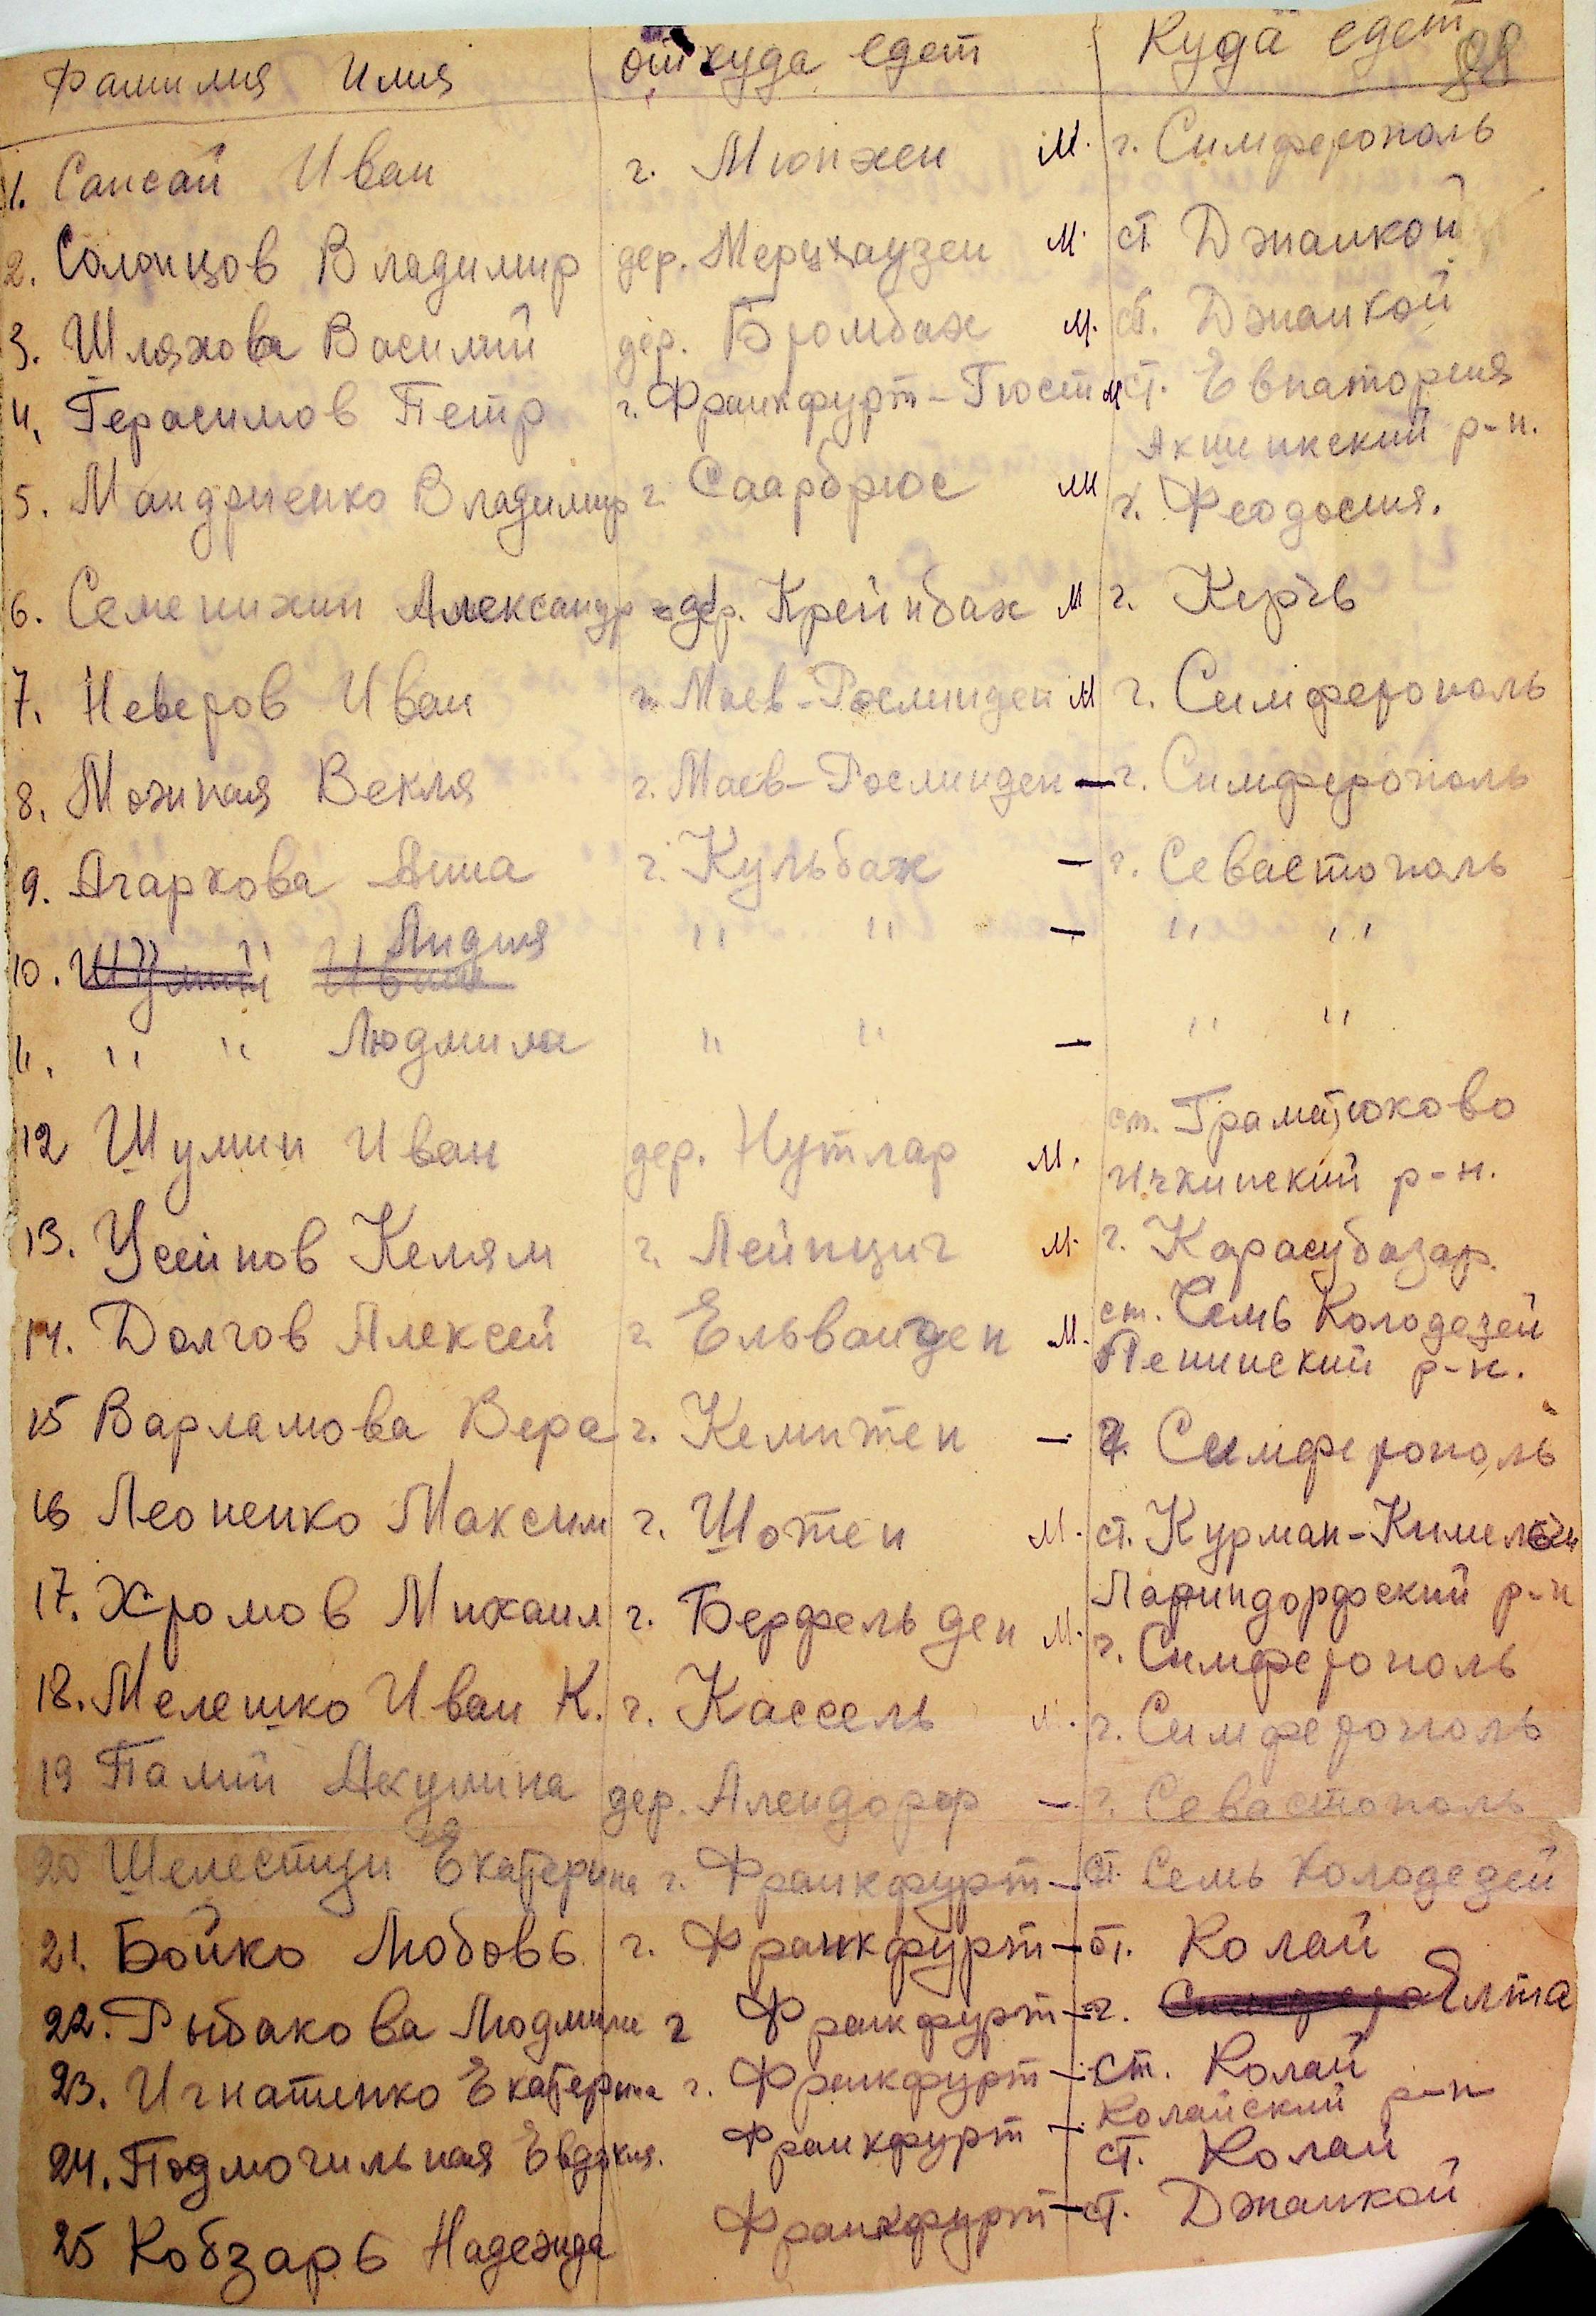 Фамилия Имя откуда едет Куда едет 88
1. Сансай Иван г. Мюнхен м. г. Симферополь
2. Солонцов Владимир дер. Мерцхаузен м. ст. Джанкой
3. Шляхова Василий дер. Бромбах м. ст. Джанкой
4. Герасимов Петр г. Франкфурт-Гюст м ст. Евпатория
Акшинкский р-н.
5. Мандриенко Владимир г. Саарбрюс м г. Феодосия.
6. Семенихин Александр дер. Крейнбах м г. Керчь
7. Неверов Иван г. Маев-Росминден м г. Симферополь
8. Можная Векля г. Маев-Росминден — г. Симферополь
9. Агаркова Анна г. Кульбах — г. Севастополь
10. " Лидия " " — " "
Шумин Иван
11. " " Людмила " " — " "
12 Шумин Иван дер. Нутлар м. ст. Граматюково
Ичкинский р-н.
13. Усеинов Келям г. Лейпциг м. г. Карасубазар.
14. Долгов Алексей г. Ельванген м. ст. Семь Колодезей
Ленинский р-н.
15 Варламова Вера г. Кемптен — г. Симферополь
16 Леоненко Максим г. Шотен м. ст. Курман-Кимельчи
Лариндорфский р-н
17. Хромов Михаил г. Берфельден м. г. Симферополь
18. Мелешко Иван К. г. Кассель м. г. Симферополь
19 Палий Акулина дер. Алендорф — г. Севастополь
20 Шелестици Екатерина г. Франкфурт — ст. Семь Колодезей
21. Бойко Любовь г. Франкфурт — ст. Колай
22. Рыбакова Людмила г Франкфурт — г. Ялта
23. Игнатенко Екатерина г. Франкфурт — ст. Колай
Колайский р-н
24. Подмогильная Евдокия. Франкфурт — ст. Колай
25 Кобзарь Надежда Франкфурт — ст. Джанкой